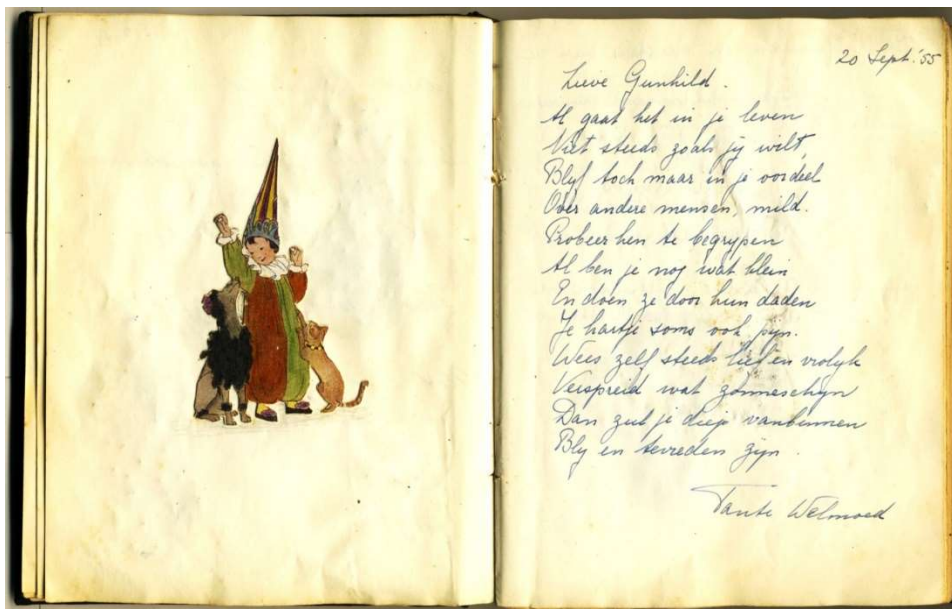 20 Sept. '55
Lieve Gunhild.
Al gaat het in je leven
Niet steeds zoals jij wilt,
Blyf toch maar in je oordeel
Over andere mensen, mild.
Probeer hen te begrypen
Al ben je nog wat klein
En doen ze door hun daden
Je hartje soms ook pyn.
Wees zelf steeds lief en vrolyk
Verspreid wat zonneschyn
Dan zul je diep vanbinnen
Bly en tevreden zyn.
Tante Welmoed